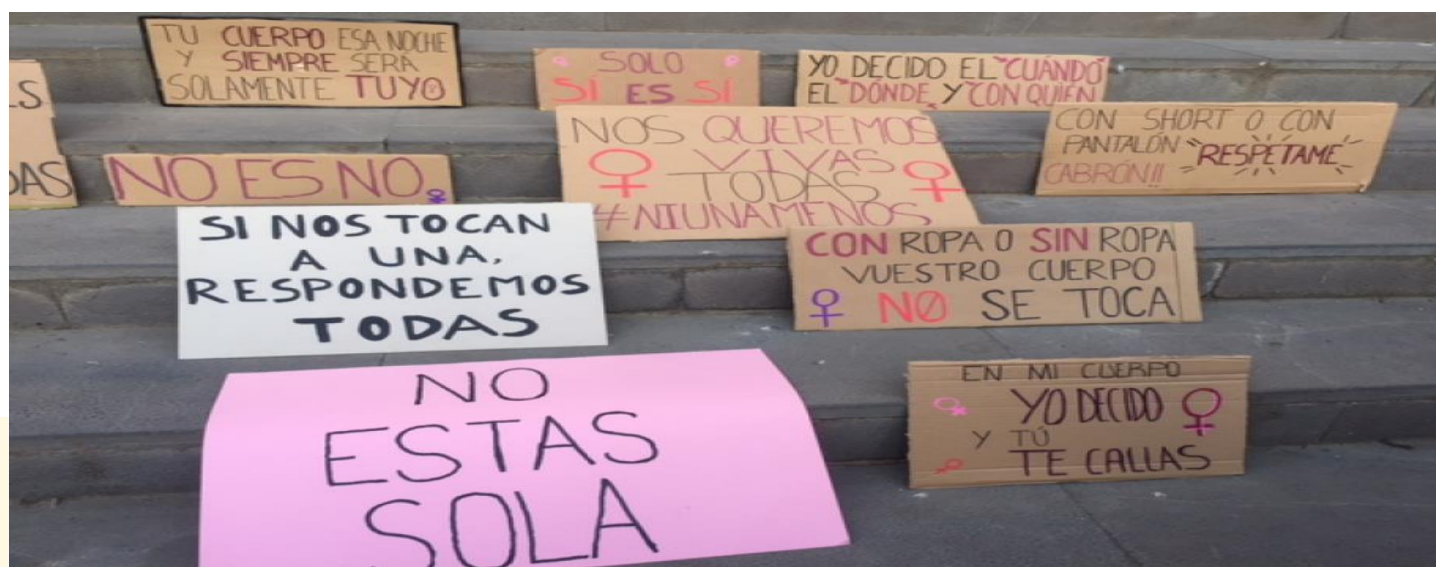 TU CUERPO ESA NOCHE
Y SIEMPRE SERA
SOLAMENTE TUYO
SOLO
SÍ ES SÍ
YO DECIDO EL "CUÁNDO"
EL "DÓNDE" Y "CON QUIÉN"
NOS QUEREMOS
VIVAS
TODAS
#NIUNAMENOS
CON SHORT O CON
PANTALÓN "RESPÉTAME"
CABRÓN!!
NO ES NO
SI NOS TOCAN
A UNA,
RESPONDEMOS
TODAS
CON ROPA O SIN ROPA
VUESTRO CUERPO
NO SE TOCA
NO
ESTAS
SOLA
EN MI CUERPO
YO DECIDO
Y TÚ
TE CALLAS